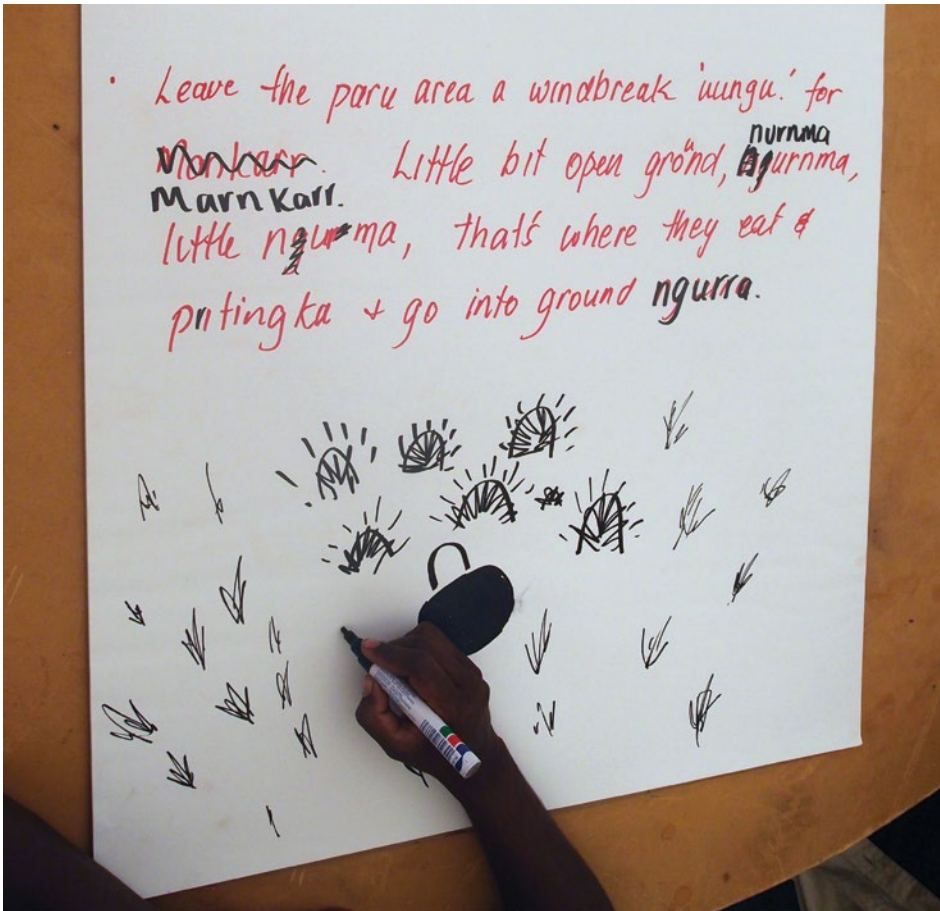 • Leave the paru area a windbreak 'uungu.' for
nurnma
Monkarr. Little bit open gröund, ngurnma,
Marnkarr.
little ngurma, that's where they eat &
pritingka + go into ground ngurra.